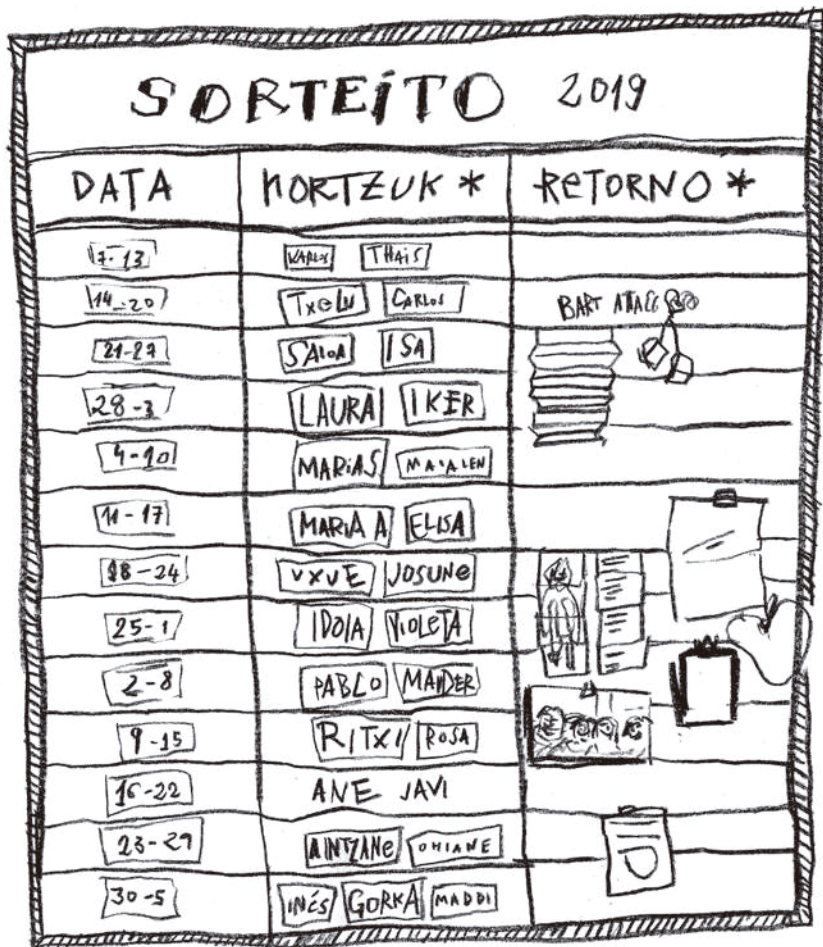 SORTEITO 2019
DATA NORTZUK * RETORNO *
7-13 KARLOS THAIS
14-20 TXELU CARLOS BART ATTACC
21-27 SAIOA ISA
28-3 LAURA IKER
4-10 MARIAS MAIALEN
11-17 MARIA A ELISA
18-24 UXUE JOSUNE
25-1 IDOIA VIOLETA
2-8 PABLO MAIDER
9-15 RITXI ROSA
16-22 ANE JAVI
23-29 AINTZANE OHIANE
30-5 INÉS GORKA MADDI